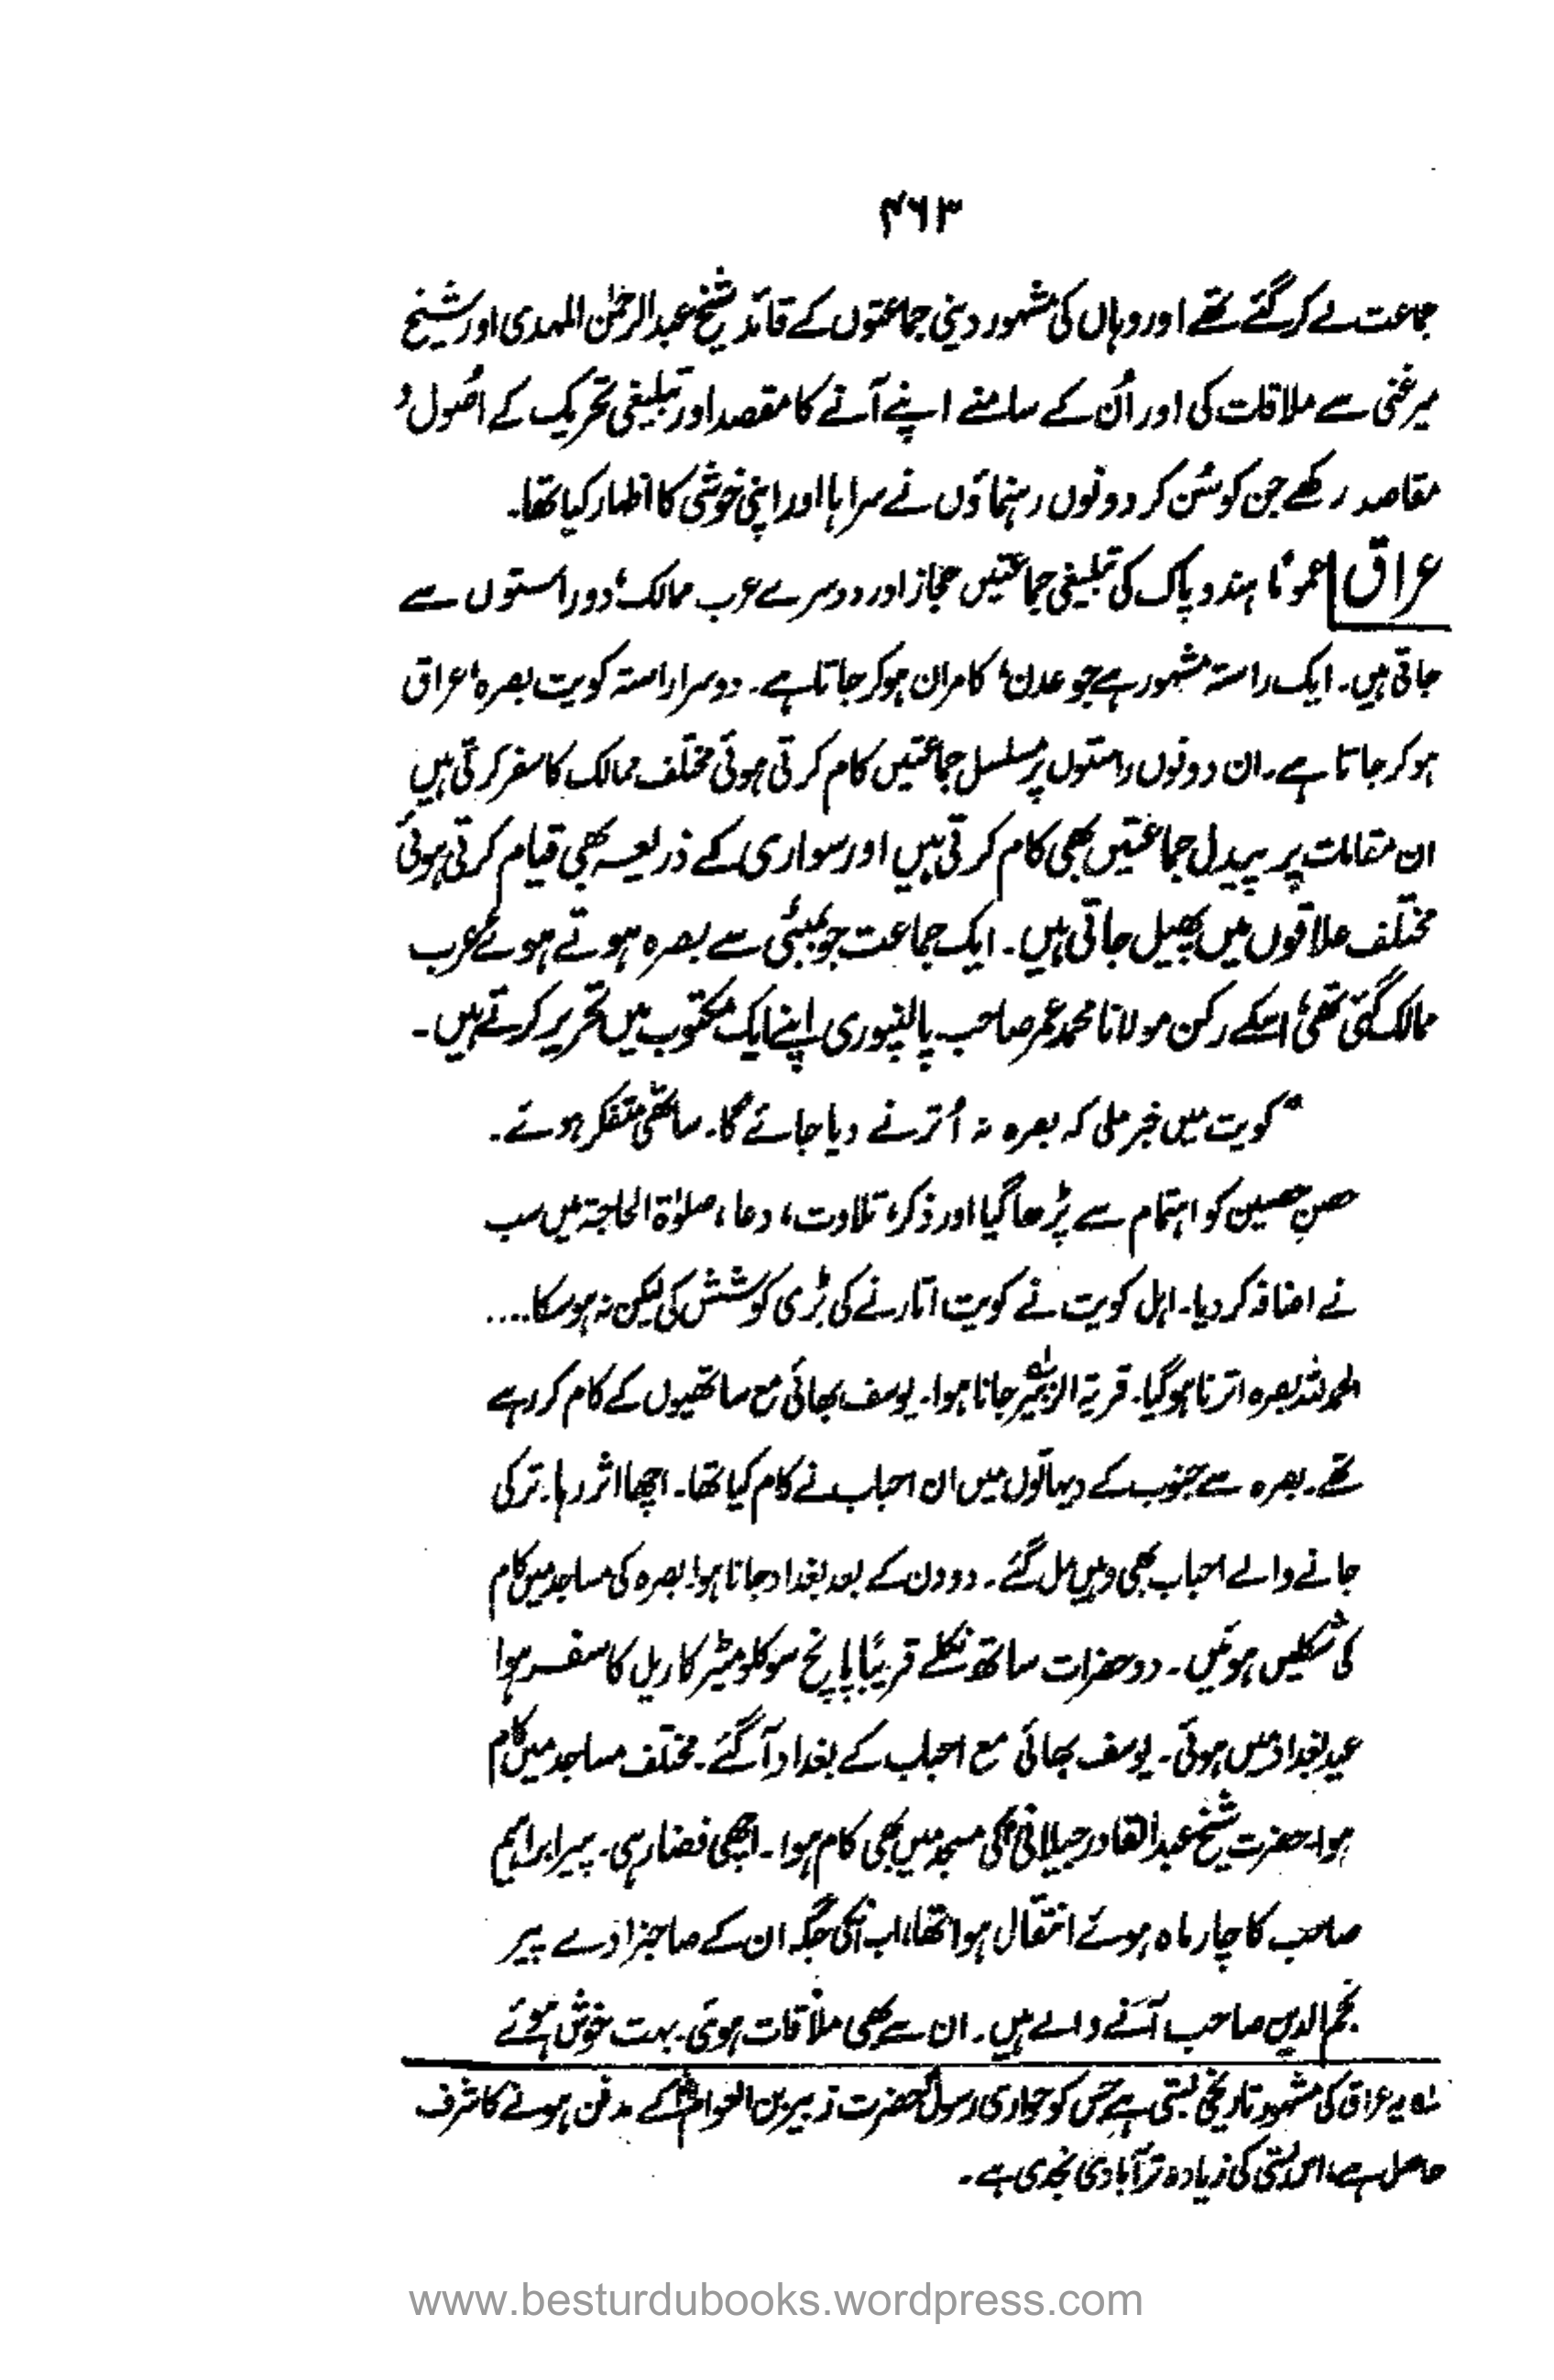 ۴۶۳
جماعت لے کر گئے تھے اور وہاں کی مشہور دینی جماعتوں کے قائد شیخ عبدالرحمٰن المہدی اور شیخ
میرغنی سے ملاقات کی اور اُن کے سامنے اپنے آنے کا مقصد اور تبلیغی تحریک کے اصُول و
مقاصد رکھے جن کو سُن کر دونوں رہنماؤں نے سراہا اور اپنی خوشی کا اظہار کیا تھا۔
عراق عمومًا ہند و پاک کی تبلیغی جماعتیں حجاز اور دوسرے عرب ممالک، دو راستوں سے
جاتی ہیں۔ ایک راستہ مشہور ہے جو عدن، کامران ہو کر جاتا ہے۔ دوسرا راستہ کویت بصرہ، عراق
ہو کر جاتا ہے۔ ان دونوں راستوں پر مسلسل جماعتیں کام کرتی ہوئی مختلف ممالک کا سفر کرتی ہیں
ان مقامات پر پیدل جماعتیں بھی کام کرتی ہیں اور سواری کے ذریعہ بھی قیام کرتی ہوئی
مختلف علاقوں میں پھیل جاتی ہیں۔ ایک جماعت جو بمبئی سے بصرہ ہوتے ہوئے عرب
ممالک گئی تھی، اسکے رکن مولانا محمد عمر صاحب پالنپوری اپنے ایک مکتوب میں تحریر کرتے ہیں۔
"کویت میں خبر ملی کہ بصرہ نہ اُترنے دیا جائے گا۔ ساتھی متفکر ہوئے۔
حصنِ حصین کو اہتمام سے پڑھا گیا اور ذکر، تلاوت، دعا، صلوٰۃ الحاجۃ میں سب
نے اضافہ کر دیا۔ اہل کویت نے کویت اتارنے کی بڑی کوشش کی لیکن نہ ہو سکا....
الحمد للہ بصرہ اترنا ہوگیا۔ قریۃ الزبیرؓ جانا ہوا۔ یوسف بھائی مع ساتھیوں کے کام کر رہے
تھے۔ بصرہ سے جنوب کے دیہاتوں میں ان احباب نے کام کیا تھا۔ اچھا اثر رہا۔ ترکی
جانے والے احباب بھی وہیں مل گئے۔ دو دن کے بعد بغداد جانا ہوا۔ بصرہ کی مساجد میں کام
کی شکلیں ہوئیں۔ دو حضرات ساتھ نکلے قریبًا پانچ سو کلومیٹر کا ریل کا سفر ہوا
عید بغداد میں ہوئی۔ یوسف بھائی مع احباب کے بغداد آگئے۔ مختلف مساجد میں کام
ہوا۔ حضرت شیخ عبدالقادر جیلانیؒ کی مسجد میں بھی کام ہوا۔ اچھی فضا رہی۔ پیر ابراہیم
صاحب کا چار ماہ ہوئے انتقال ہوا تھا، اب انکی جگہ ان کے صاحبزادے پیر
نجم الدین صاحب آنے والے ہیں۔ ان سے بھی ملاقات ہوئی۔ بہت خوش ہوئے
لہ یہ عراق کی مشہور تاریخی بستی ہے جس کو حواری رسولؐ حضرت زبیر بن العوامؓ کے مدفن ہونے کا شرف
حاصل ہے، اس بستی کی زیادہ تر آبادی نجدی ہے۔
www.besturdubooks.wordpress.com